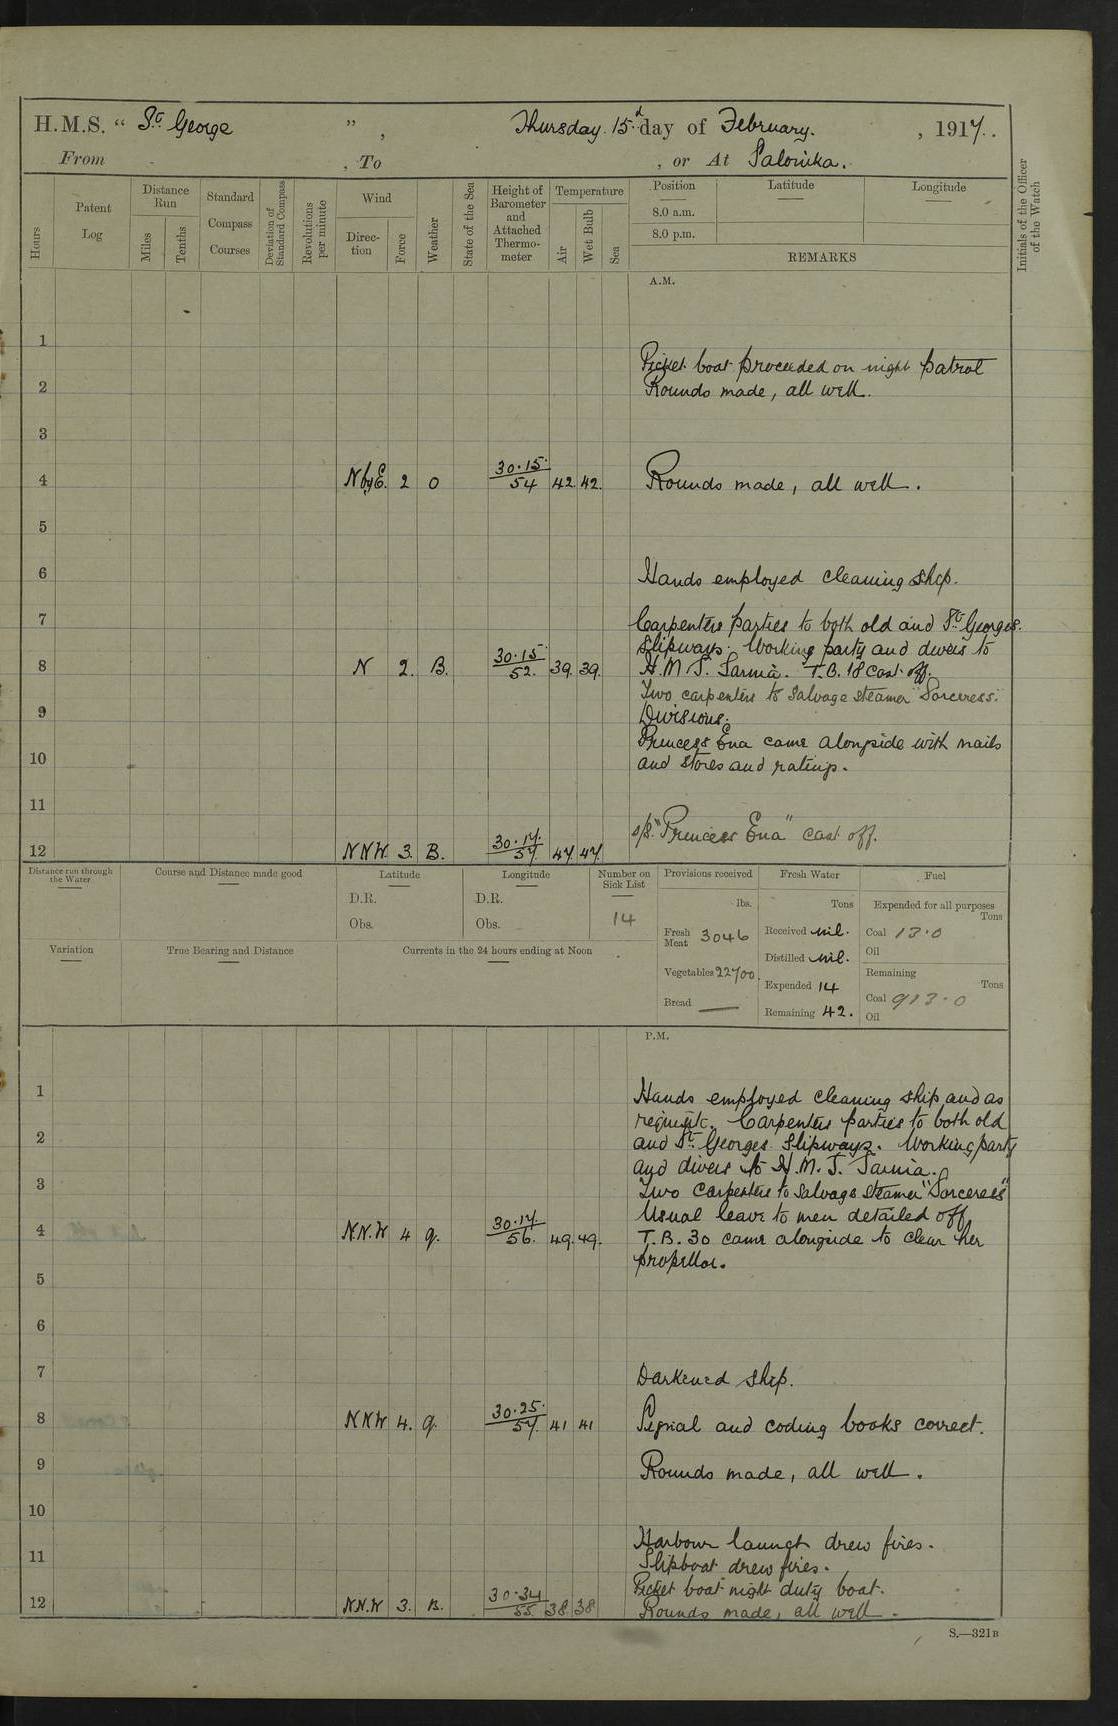 H.M.S. " St George " , Thursday 15.d day of February. , 1917.
From , To , or At Salonika.
Hours
Patent Log
Distance Run
Miles
Tenths
Standard Compass Courses
Deviation of Standard Compass
Revolutions per minute
Wind
Direction
Force
Weather
State of the Sea
Height of Barometer and Attached Thermometer
Temperature
Air
Wet Bulb
Sea
Position
Latitude
Longitude
8.0 a.m.
8.0 p.m.
REMARKS
Initials of the Officer of the Watch
A.M.
1
Picket boat proceeded on night patrol
2 Rounds made, all well.
3
4 N by E. 2 O 30.15. 54 42. 42. Rounds made, all well.
5
6 Hands employed cleaning ship.
7 Carpenters parties to both old and St Georges.
Slipways. Working party and divers to
8 N 2. B. 30.15. 52. 39. 39. H.M.T. Sarnia. T.B. 18 cast off.
Two carpenters to Salvage steamer "Sorceress."
9 Divisions.
Princess Ena came alongside with mails
10 and stores and ratings.
11
s/s. "Princess Ena" cast off.
12 N N W. 3. B. 30.17. 57. 47. 47.
Distance run through the Water
Course and Distance made good
Latitude
Longitude
Number on Sick List
Provisions received
Fresh Water
Fuel
D.R. D.R.
Obs. Obs.
14
lbs. Tons
Expended for all purposes Tons
Fresh Meat 3046 Received nil. Coal 13.0
Distilled nil. Oil
Variation
True Bearing and Distance
Currents in the 24 hours ending at Noon
Vegetables 22700. Expended 14 Remaining Tons
Bread — Remaining 42. Coal 913.0
Oil
P.M.
1 Hands employed cleaning ship and as
requisite. Carpenters parties to both old
2 and St Georges Slipways. Working party
and divers to H.M.T. Sarnia.
3 Two Carpenters to Salvage steamer "Sorceress"
Usual leave to men detailed off
4 N.N.W 4 q. 30.17. 56. 49. 49. T.B. 30 came alongside to clear her
propellor.
5
6
7 Darkened ship.
8 N N W 4. q. 30.25. 57. 41 41 Signal and coding books correct.
9 Rounds made, all well.
10
Harbour launch drew fires.
11 Slipboat drew fires.
Picket boat night duty boat.
12 N.N.W 3. B. 30.34 55. 38 38 Rounds made, all well.
S.—321B